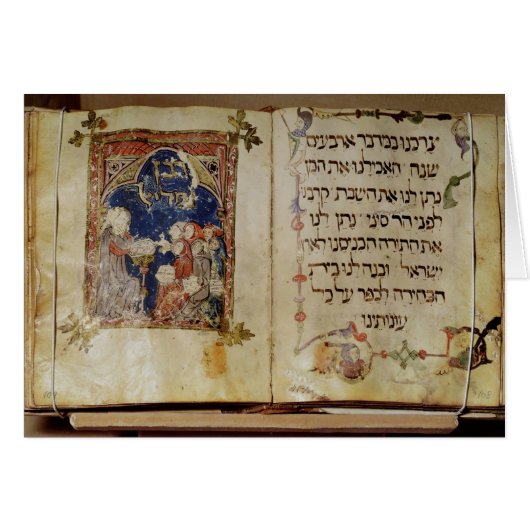 רבן
צרכנו במדבר ארבעים
שנה האכילנו את המן
נתן לנו את השבת קרבנו
לפני הר סיני נתן לנו
את התורה הכניסנו
ישראל ובנה לנו בית
הבחירה לכפר על כל
עונותינו
108